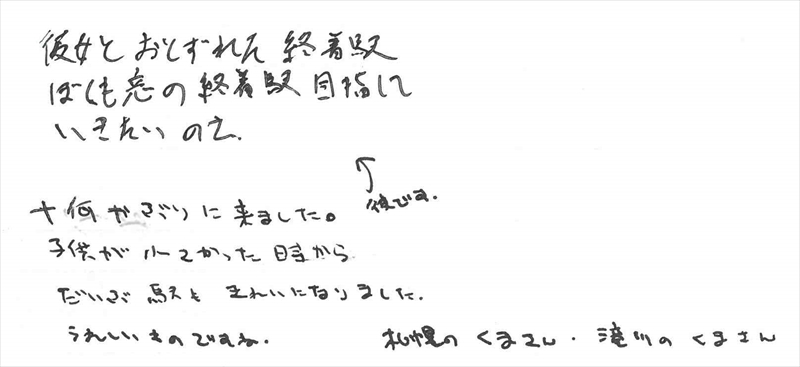 彼女とおとずれた終着駅
ぼくも恋の終着駅目指して
いきたいので.
彼です.
十何年ぶりに来ました。
子供が小さかった時から
だいぶ駅もきれいになりました.
うれしいものですね.
札幌のくまさん・滝川のくまさん